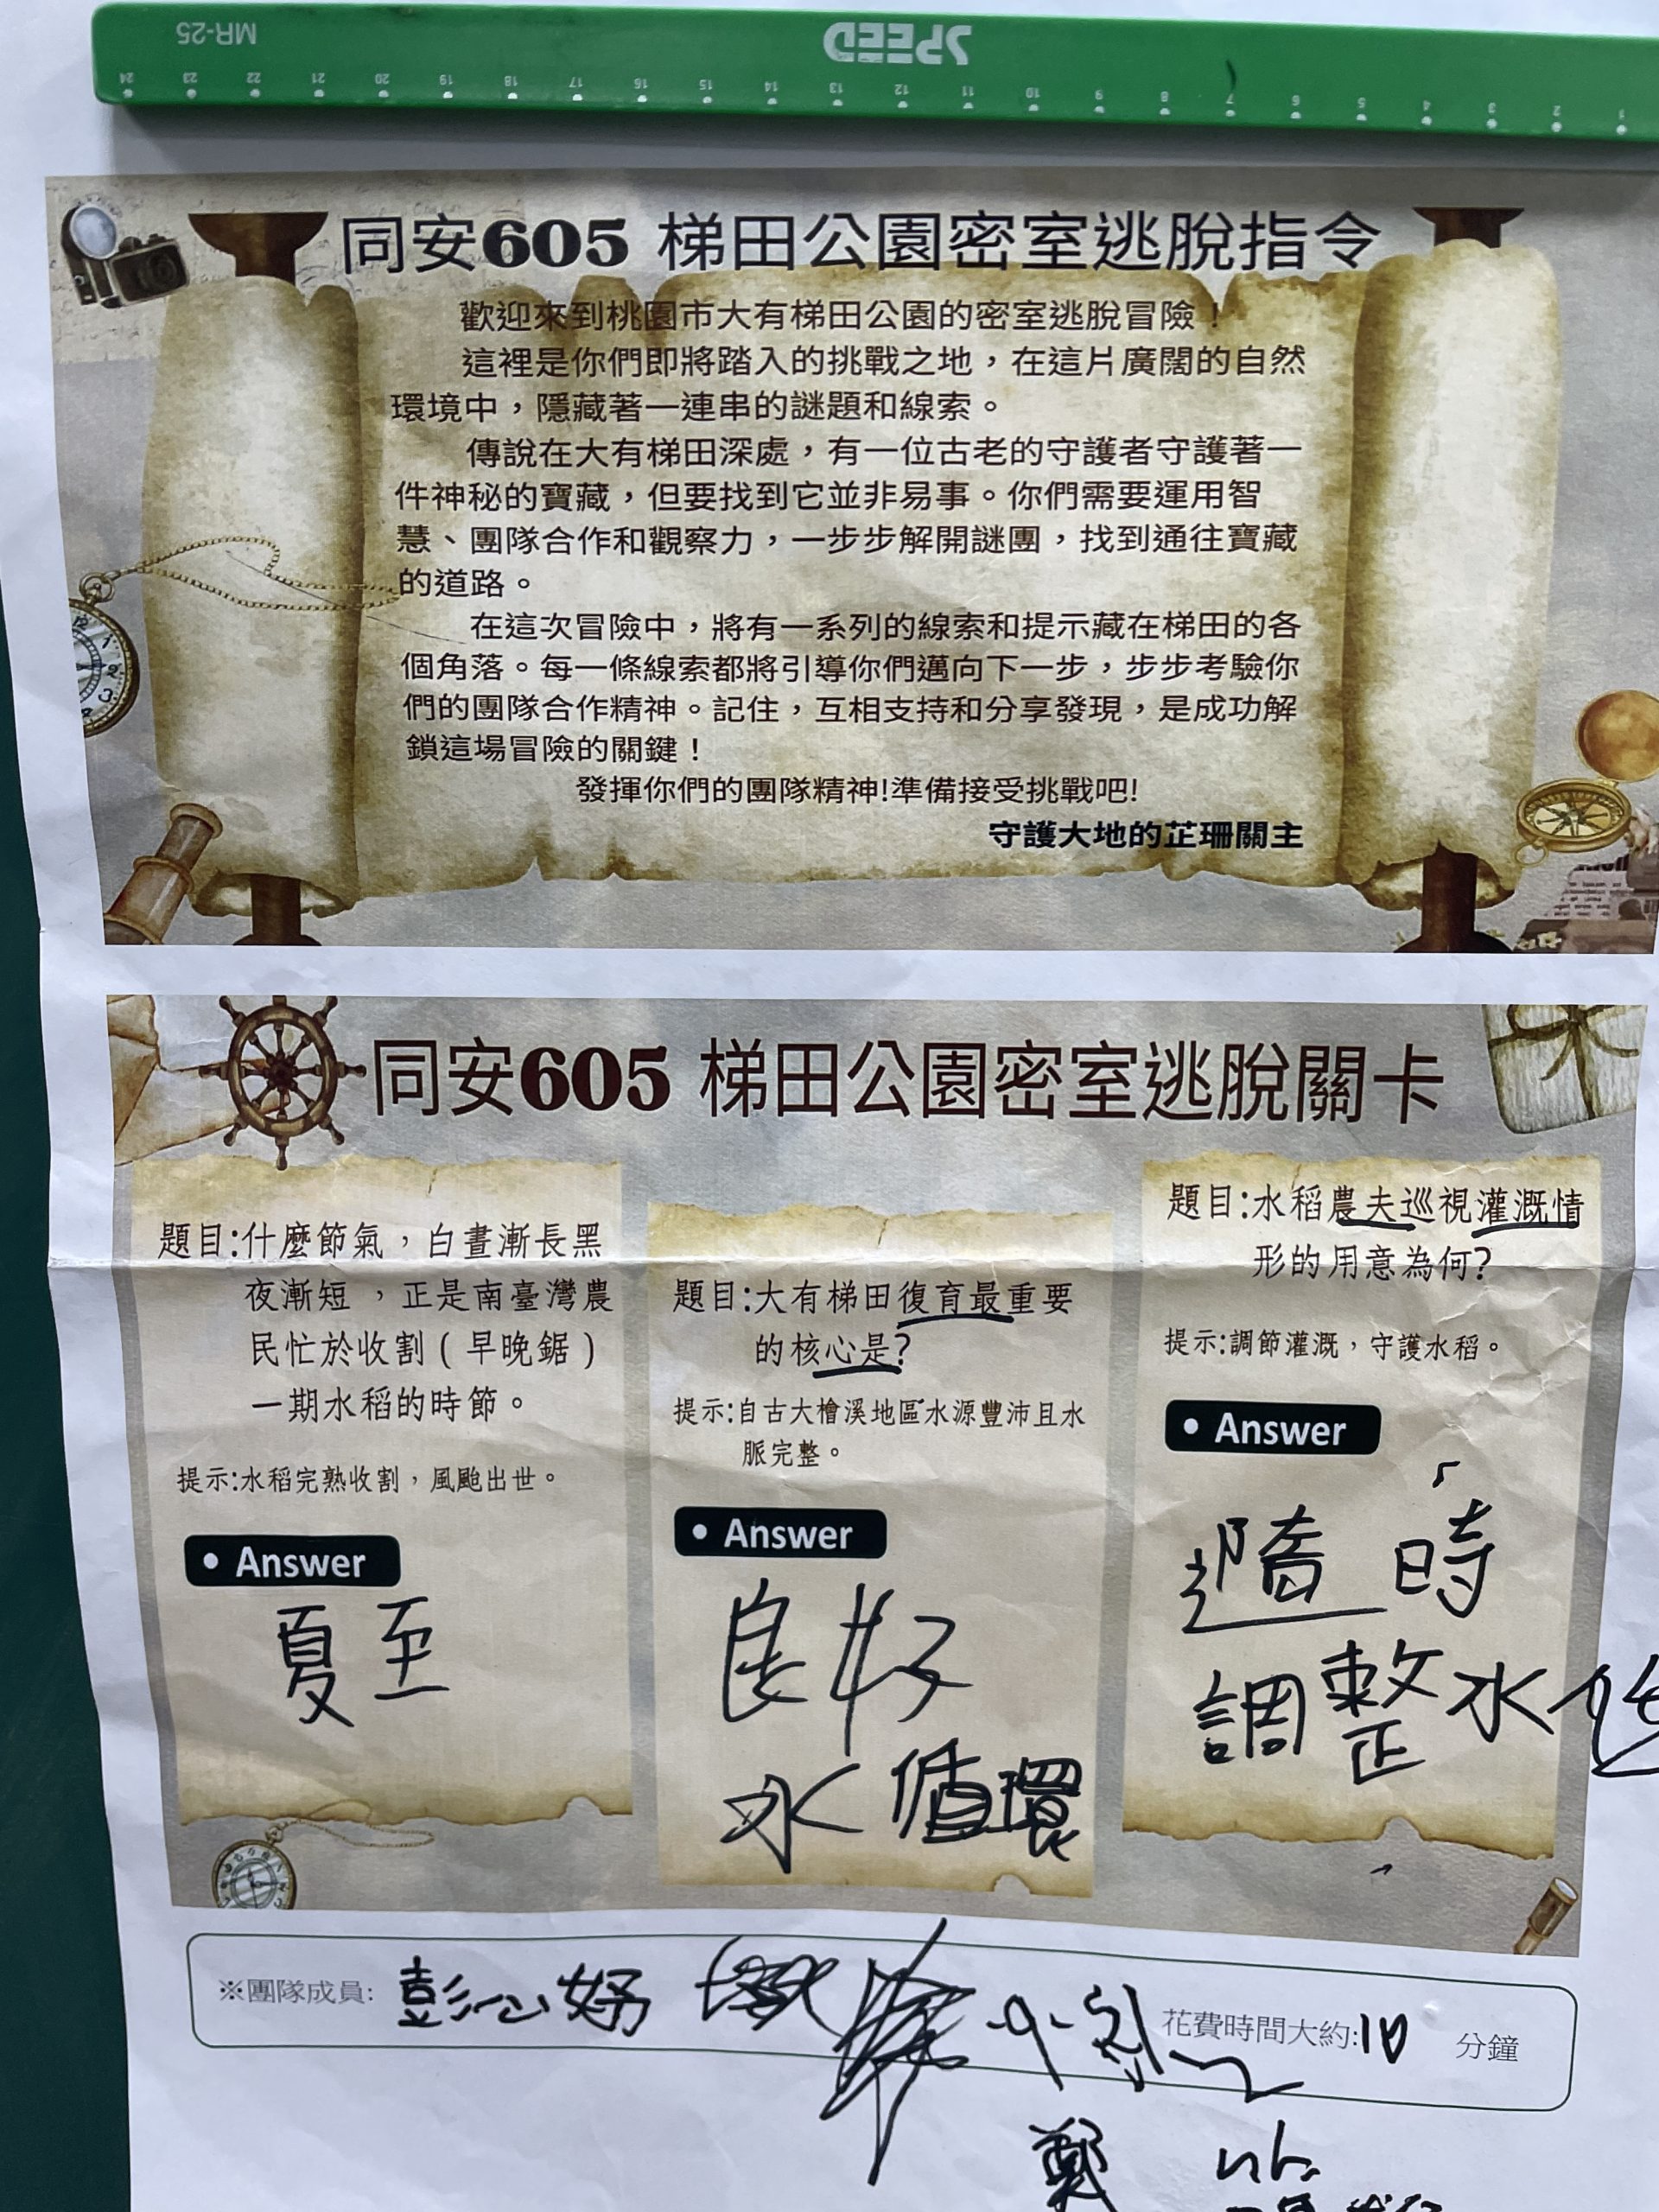 MR-25
SPEED
24 23 22 21 20 19 18 17 16 15 14 13 12 11 10 9 8 7 6 5 4 3 2 1
同安605 梯田公園密室逃脫指令
歡迎來到桃園市大有梯田公園的密室逃脫冒險！
這裡是你們即將踏入的挑戰之地，在這片廣闊的自然
環境中，隱藏著一連串的謎題和線索。
傳說在大有梯田深處，有一位古老的守護者守護著一
件神秘的寶藏，但要找到它並非易事。你們需要運用智
慧、團隊合作和觀察力，一步步解開謎團，找到通往寶藏
的道路。
在這次冒險中，將有一系列的線索和提示藏在梯田的各
個角落。每一條線索都將引導你們邁向下一步，步步考驗你
們的團隊合作精神。記住，互相支持和分享發現，是成功解
鎖這場冒險的關鍵！
發揮你們的團隊精神!準備接受挑戰吧!
守護大地的芷珊關主
同安605 梯田公園密室逃脫關卡
題目:什麼節氣，白晝漸長黑
夜漸短，正是南臺灣農
民忙於收割(早晚鋸)
一期水稻的時節。
提示:水稻完熟收割，風颱出世。
• Answer
夏至
題目:大有梯田復育最重要
的核心是?
提示:自古大檜溪地區水源豐沛且水
脈完整。
• Answer
良好
水循環
題目:水稻農夫巡視灌溉情
形的用意為何?
提示:調節灌溉，守護水稻。
• Answer
隨時
調整水位
※團隊成員: 彭心妤
花費時間大約:10 分鐘
鄭